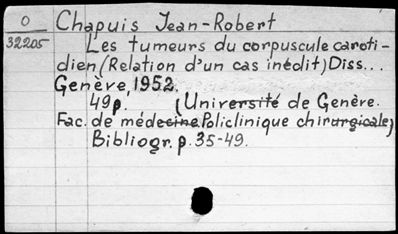 O Chapuis Jean-Robert
32205 Les tumeurs du corpuscule caroti-
dien (Relation d'un cas inédit) Diss...
Genève, 1952.
49p. (Université de Genève.
Fac. de médecine. Policlinique chirurgicale)
Bibliogr. p. 35-49.